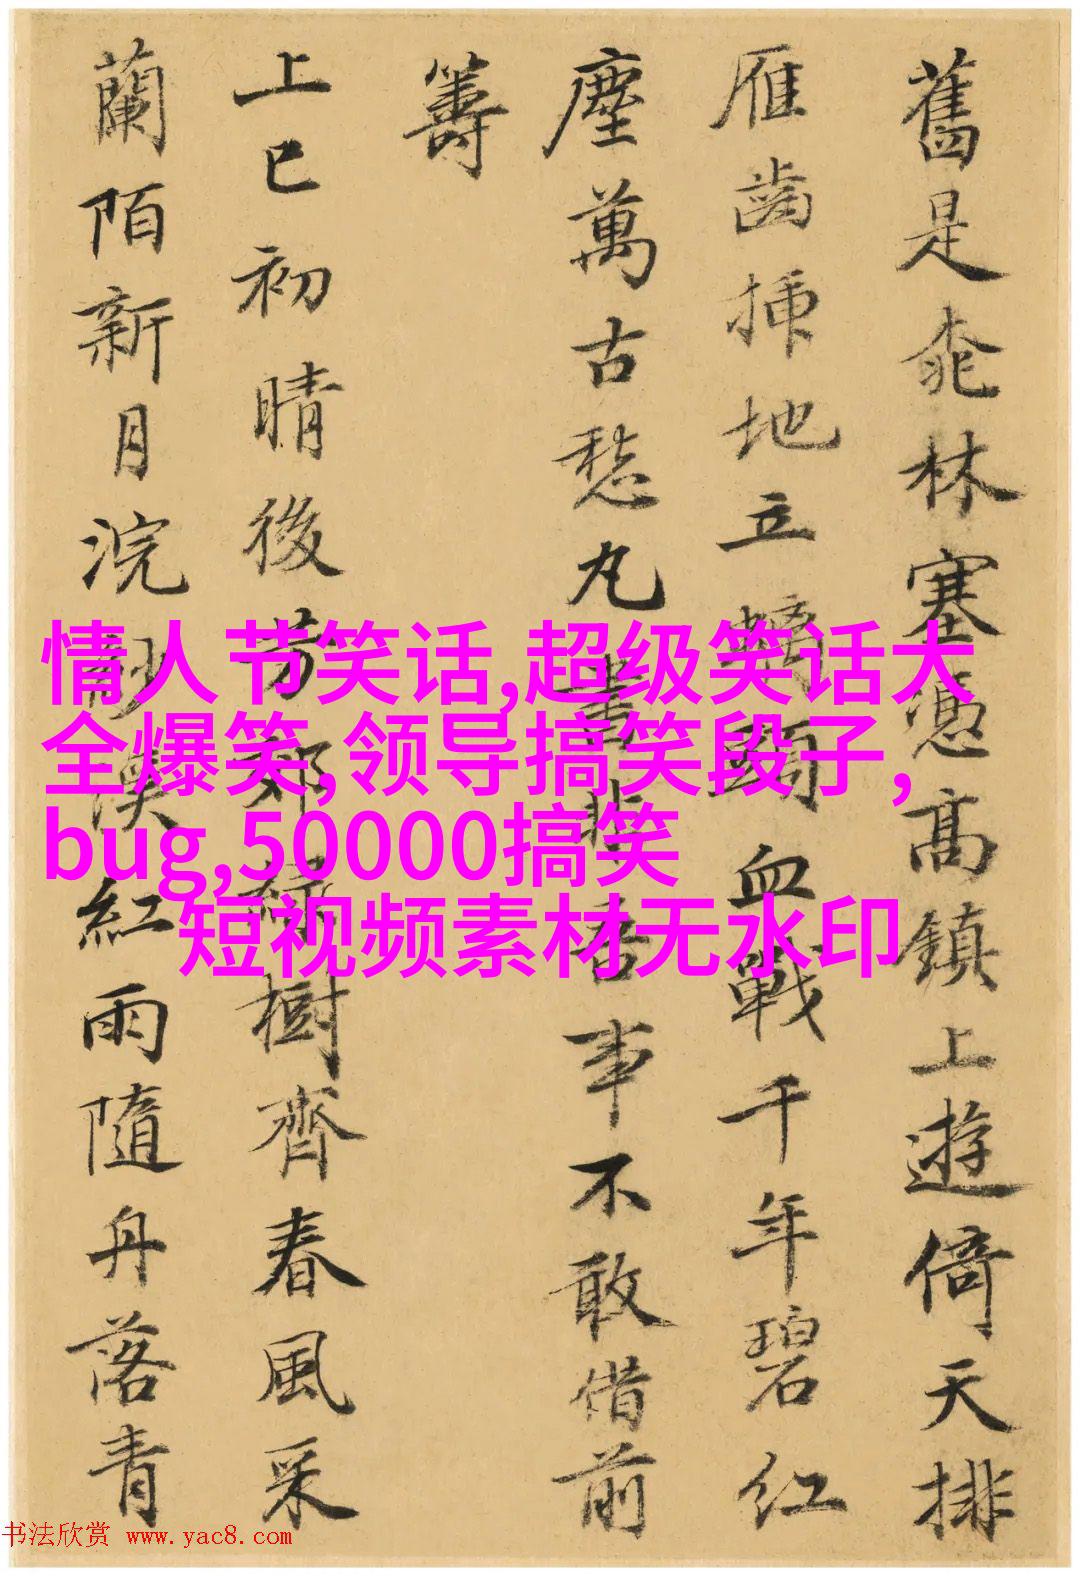 舊是桃林塞憑高鎮上遊倚天排
雁齒插地立螭頭血戰千年碧紅
塵萬古愁丸書非吾事不敢借前
籌
上巳初晴後芳郊緑樹齊春風采
蘭陌新月浣紗溪紅雨隨舟落青
情人节笑话,超级笑话大
全爆笑,领导搞笑段子,
bug,50000搞笑
短视频素材无水印
书法欣赏 www.yac8.com